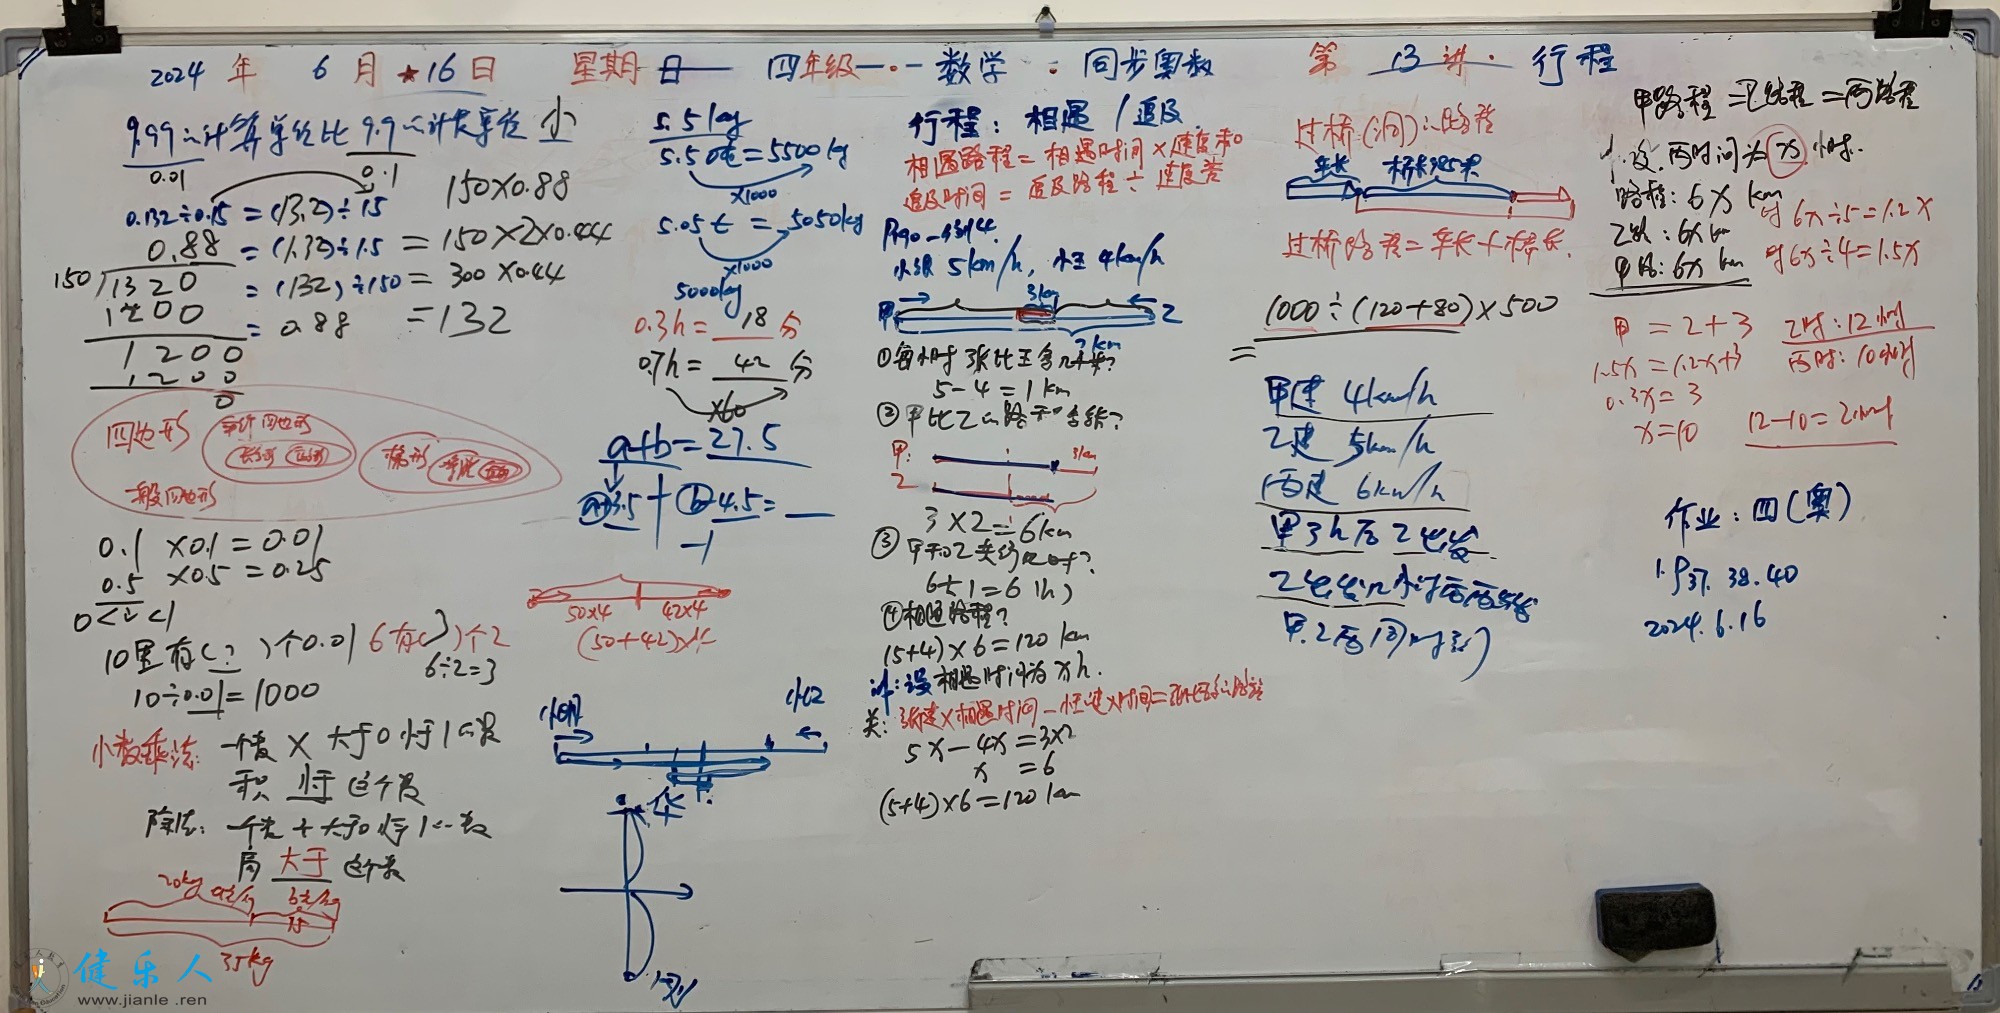 2024 年 6 月 16 日 星期日 四年级 数学 同步奥数 第 13 讲 行程
9.99的计算单位比9.9的计数单位 小
0.01 0.1
0.132÷0.15 = (13.2)÷15
= (1.32)÷1.5
= (132)÷150
= 0.88
0.88
150 1320
1200
1200
1200
0
150×0.88
= 150×2×0.44
= 300×0.44
= 132
四边形
平行四边形
长方形 正方形
梯形
一般四边形
0.1 ×0.1 = 0.01
0.5 ×0.5 = 0.25
10里有( ? )个0.01
6有( 3 )个2
6÷2=3
10÷0.01=1000
小数乘法: 一个数 × 大于0小于1的数
积 小于 这个数
除法: 一个数 ÷ 大于0小于1的数
商 大于 这个数
20kg
35kg
5.5kg
5.5吨=5500kg
×1000
5.05t = 5050kg
×1000
5000kg
0.3h= 18 分
0.7h= 42 分
×60
a+b=27.5
a+3.5 + b-4.5=
-1
50×4 42×4
(50+42)×4
小明 小红
行程: 相遇/追及
相遇路程=相遇时间×速度和
追及时间=追及路程÷速度差
P190-例4
小张 5km/h, 小王 4km/h
3km
甲 乙
? km
①每小时张比王多几千米?
5-4=1km
②甲比乙的路和多多?
甲: 3km
乙
3×2=6km
③甲和乙
6÷1=6(h)
④相遇路程?
(5+4)×6=120 km
解:设相遇时间为xh.
关: 张速×相遇时间-王速×时间=
5x-4x=3×2
x =6
(5+4)×6=120 km
过桥(洞)的路程
车长 桥长
过桥路程=车长+桥长.
1000÷(120+80)×500
=
甲速 4km/h
乙速 5km/h
丙速 6km/h
甲3h后乙出发
乙出发几小时后丙出发
甲.乙后同时到
甲路程=乙路程=丙路程
设丙时间为x小时.
路程: 6x km
乙路: 6x km
甲路: 6x km
时6x÷5=1.2x
时6x÷4=1.5x
甲 = 2+3
1.5x=1.2x+3
0.3x=3
x=10
乙时: 12小时
丙时: 10小时
12-10=2小时
作业: 四(奥)
1.P37. 38. 40
2024.6.16
健乐人
www.jianle .ren